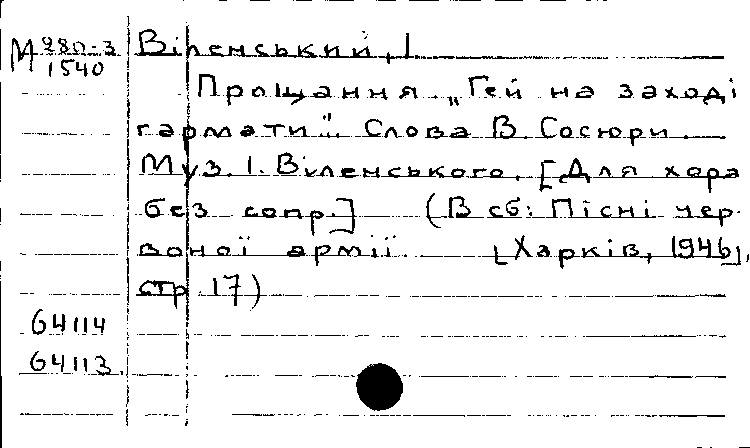 М 980-3 Віленський, І
1540
Прощання „Гей на заході
гармати". Слова В. Сосюри.
Муз. І. Віленського. [Для хора
без сопр.] (В сб: Пісні чер-
воної армії. [Харків, 1946],
стр. 17)
64114
64113